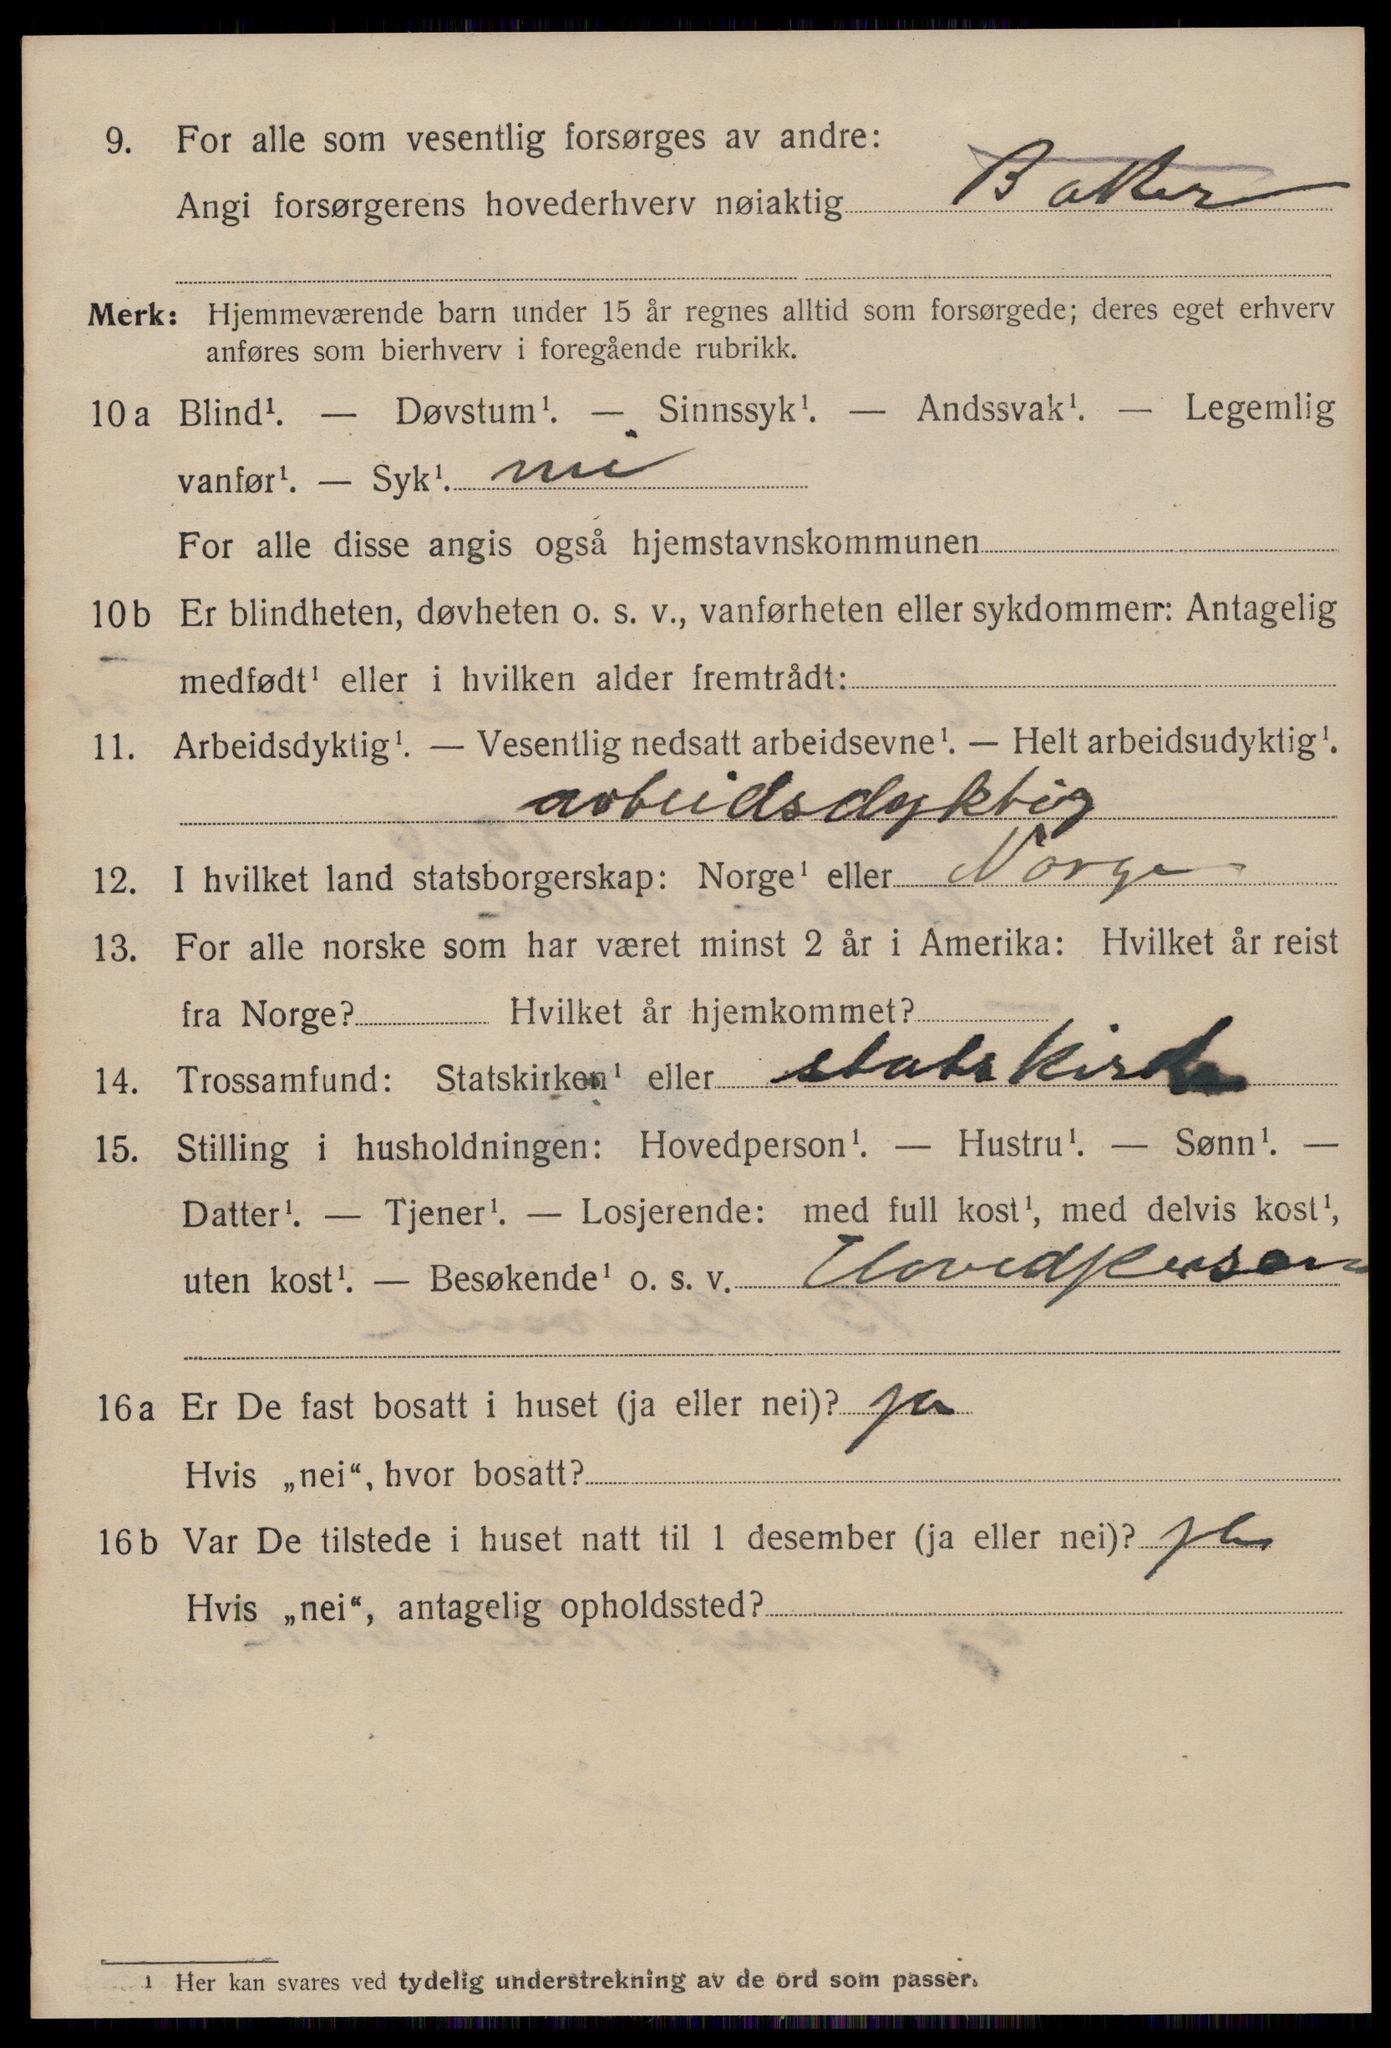 9. For alle som vesentlig forsørges av andre:
Angi forsørgerens hovederhverv nøiaktig Baker
Merk: Hjemmeværende barn under 15 år regnes alltid som forsørgede; deres eget erhverv
anføres som bierhverv i foregående rubrikk.
10 a Blind¹. — Døvstum¹. — Sinnssyk¹. — Andssvak¹. — Legemlig
vanfør¹. — Syk¹. nei
For alle disse angis også hjemstavnskommunen
10 b Er blindheten, døvheten o. s. v., vanførheten eller sykdommen: Antagelig
medfødt¹ eller i hvilken alder fremtrådt:
11. Arbeidsdyktig¹. — Vesentlig nedsatt arbeidsevne¹. — Helt arbeidsudyktig¹.
arbeidsdyktig
12. I hvilket land statsborgerskap: Norge¹ eller Norge
13. For alle norske som har været minst 2 år i Amerika: Hvilket år reist
fra Norge? Hvilket år hjemkommet?
14. Trossamfund: Statskirken¹ eller statskirke
15. Stilling i husholdningen: Hovedperson¹. — Hustru¹. — Sønn¹. —
Datter¹. — Tjener¹. — Losjerende: med full kost¹, med delvis kost¹,
uten kost¹. — Besøkende¹ o. s. v. Hovedperson
16 a Er De fast bosatt i huset (ja eller nei)? ja
Hvis „nei“, hvor bosatt?
16 b Var De tilstede i huset natt til 1 desember (ja eller nei)? ja
Hvis „nei“, antagelig opholdssted?
1 Her kan svares ved tydelig understrekning av de ord som passer.